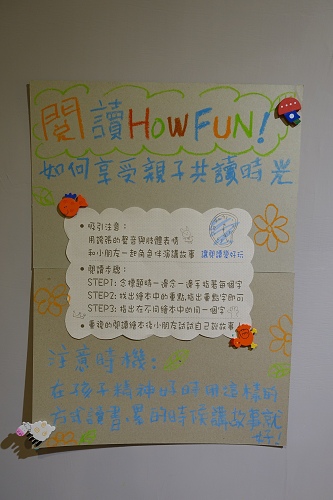 閱讀HOW FUN!
如何享受親子共讀時光
• 吸引注意:
用誇張的聲音與肢體表情
和小朋友一起角色伴演講故事 讓閱讀變好玩
• 閱讀步驟:
STEP1: 念標題時一邊念一邊手指著每個字
STEP2: 找出繪本中的重點,指出重點字即可
STEP3: 指出在不同繪本中的同一個字
• 重複的閱讀繪本後小朋友試試自己說故事
注意時機:
在孩子精神好時用這樣的
方式讀書,累的時候講故事就
好!